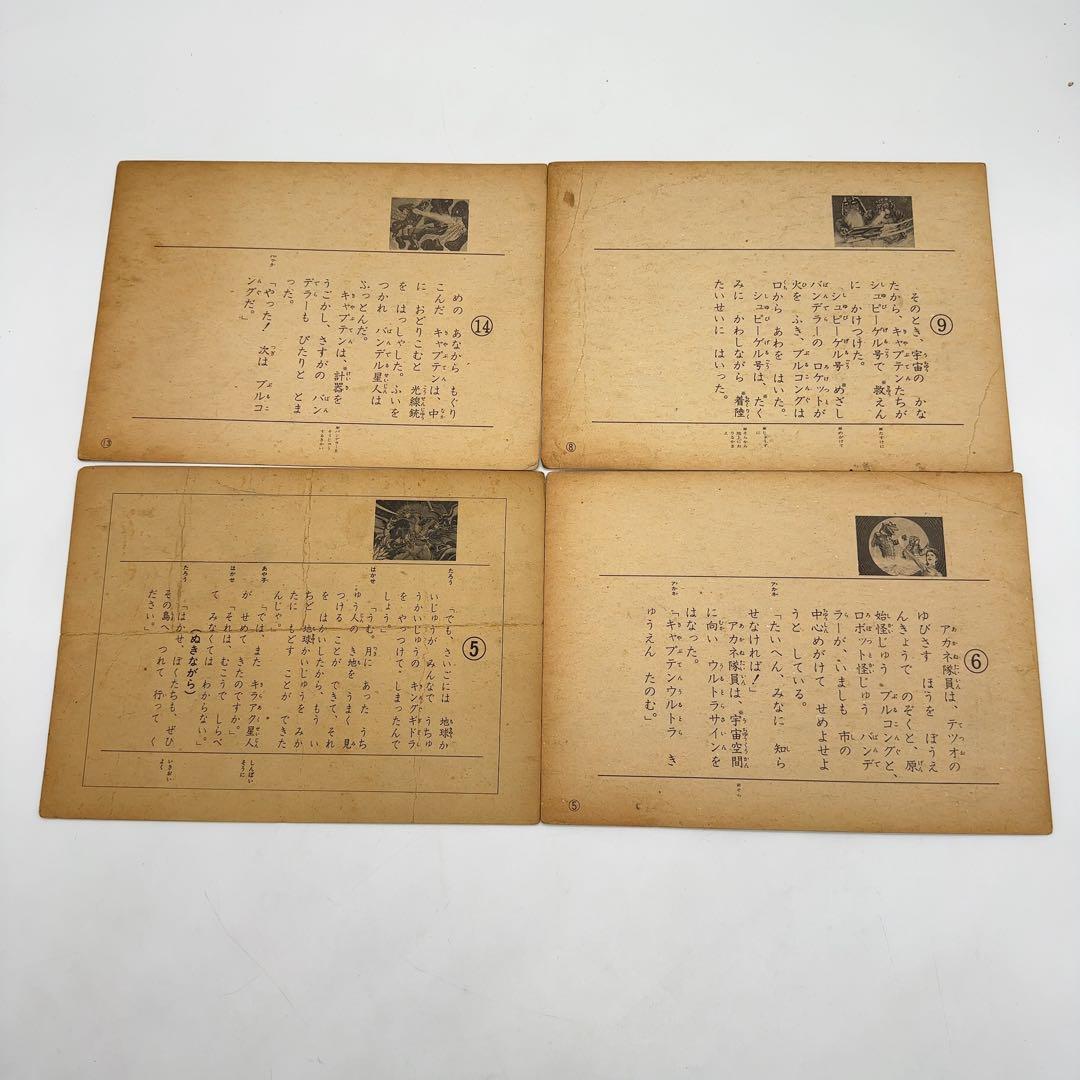 ⑭
めの あなから もぐり
こんだ キャプテンは、中
に おどりこむと 光線銃
を はっしゃした。ふいを
つかれ バンデル星人は
ふっとんだ。
キャプテンは、※計器を
うごかし、さすがの バン
デラーも ぴたりと とま
った。
「やった! 次は ブルコ
ングだ。」
⑬
⑨
そのとき、宇宙の かな
たから、キャプテンたちが
シュピーゲル号で ※救えん
に かけつけた。
シュピーゲル号 ※めざし
バンデラーの ロケットが
火を ふき、ブルコングは
口から あわを はいた。
シュピーゲル号は、※たく
みに かわしながら ※着陸
たいせいに はいった。
※たすけに
※めがけて
※じょうず
に
※そらから
地上にお
りるかま
え
⑧
⑤
たろう
「でも、さいごには 地球か
いじゅうが みんなで うちゅ
うかいじゅうの キングギドラ
を やっつけて しまったんで
しょう。」
はかせ
「うむ。月に あった うち
ゅう人の き地を うまく 見
つける ことが できて、それ
を はかいしたから、もう い
ちど 地球かいじゅうを みか
たに もどす ことが できた
んじゃ。」
あや子
「では、また キラアク星人
が せめて きたのですか。」
はかせ
「それは、むこうで しらべ
て みなくては わからない。」
(ぬきながら)
たろう
「はかせ、ぼくたちも、ぜひ
その島へ つれて 行って く
ださい。」
しんぱい
そうに
いきおい
よく
⑥
アカネ隊員は、テツオの
ゆびさす ほうを ぼうえ
んきょうで のぞくと、原
始怪じゅう ブルコングと、
ロボット怪じゅう バンデ
ラーが、いましも 市の
中心めがけて せめよせよ
うと している。
アカネ
「たいへん、みなに 知ら
せなければ!」
アカネ隊員は、※宇宙空間
に向い ウルトラサインを
はなった。
アカネ
「キャプテンウルトラ き
ゅうえん たのむ。」
※そら
⑤